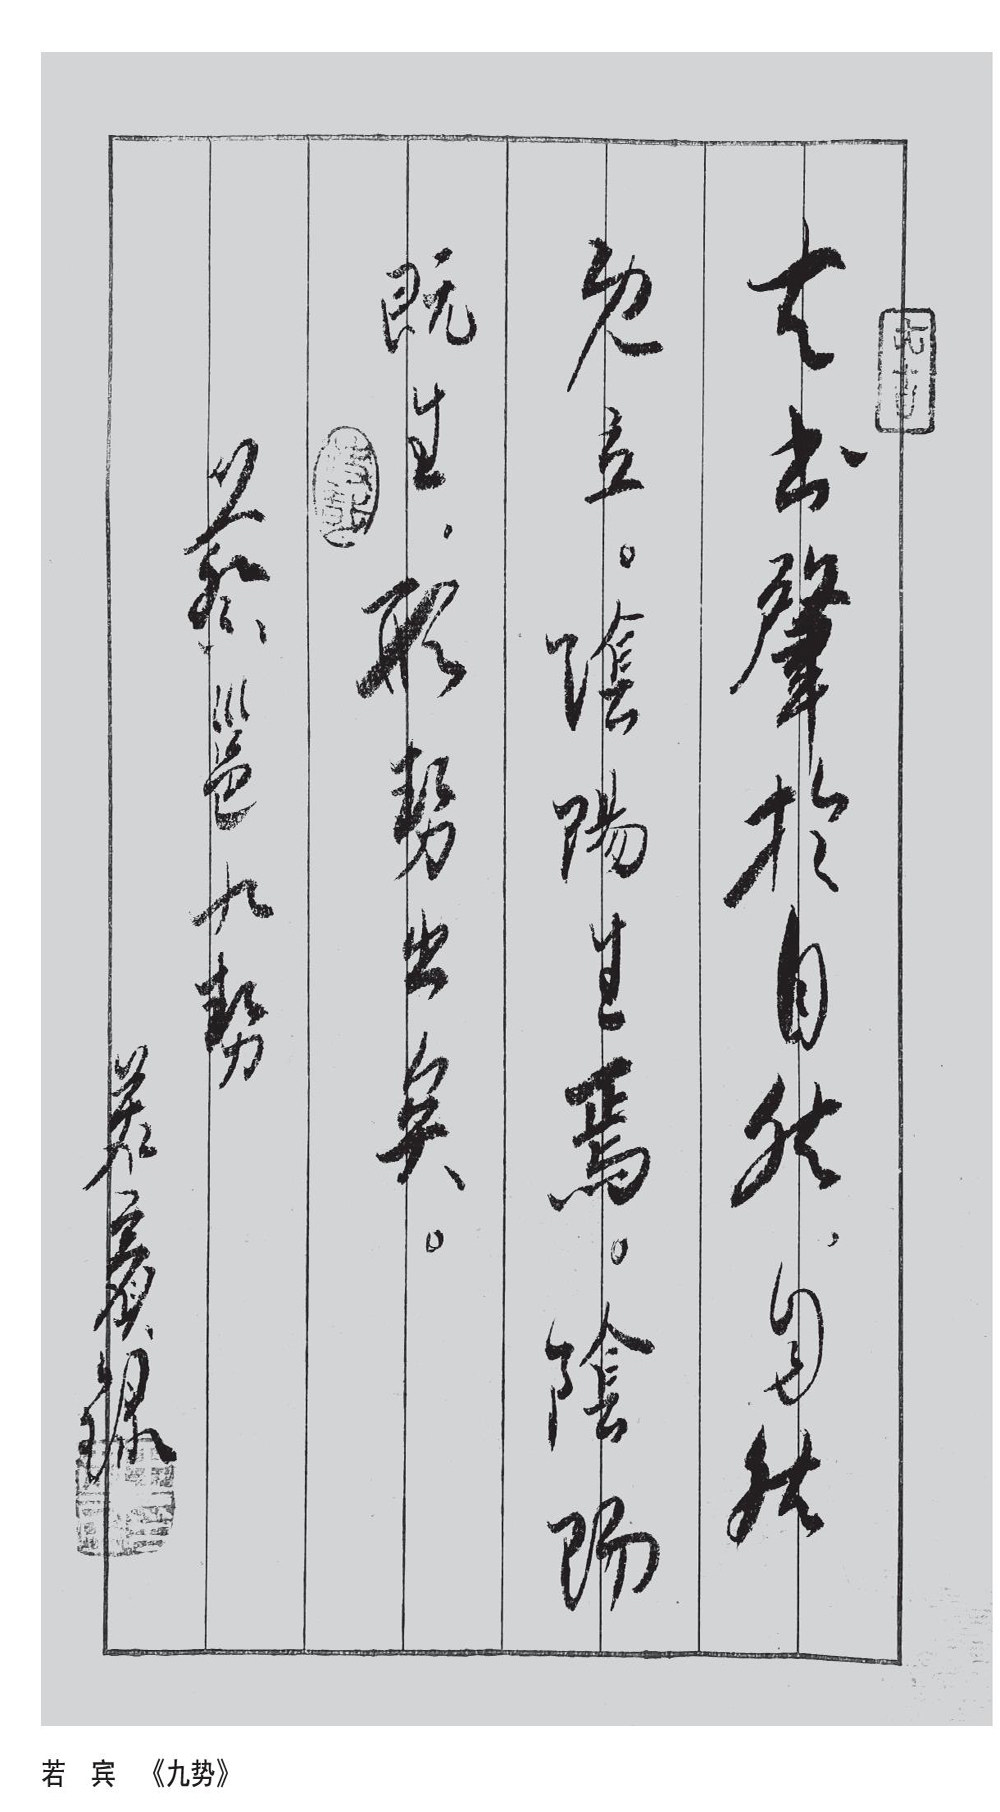 夫书肇於自然，自然
既立。陰陽生焉。陰陽
既生，形勢出矣。
蔡邕九勢
若賓録
若 宾 《九势》